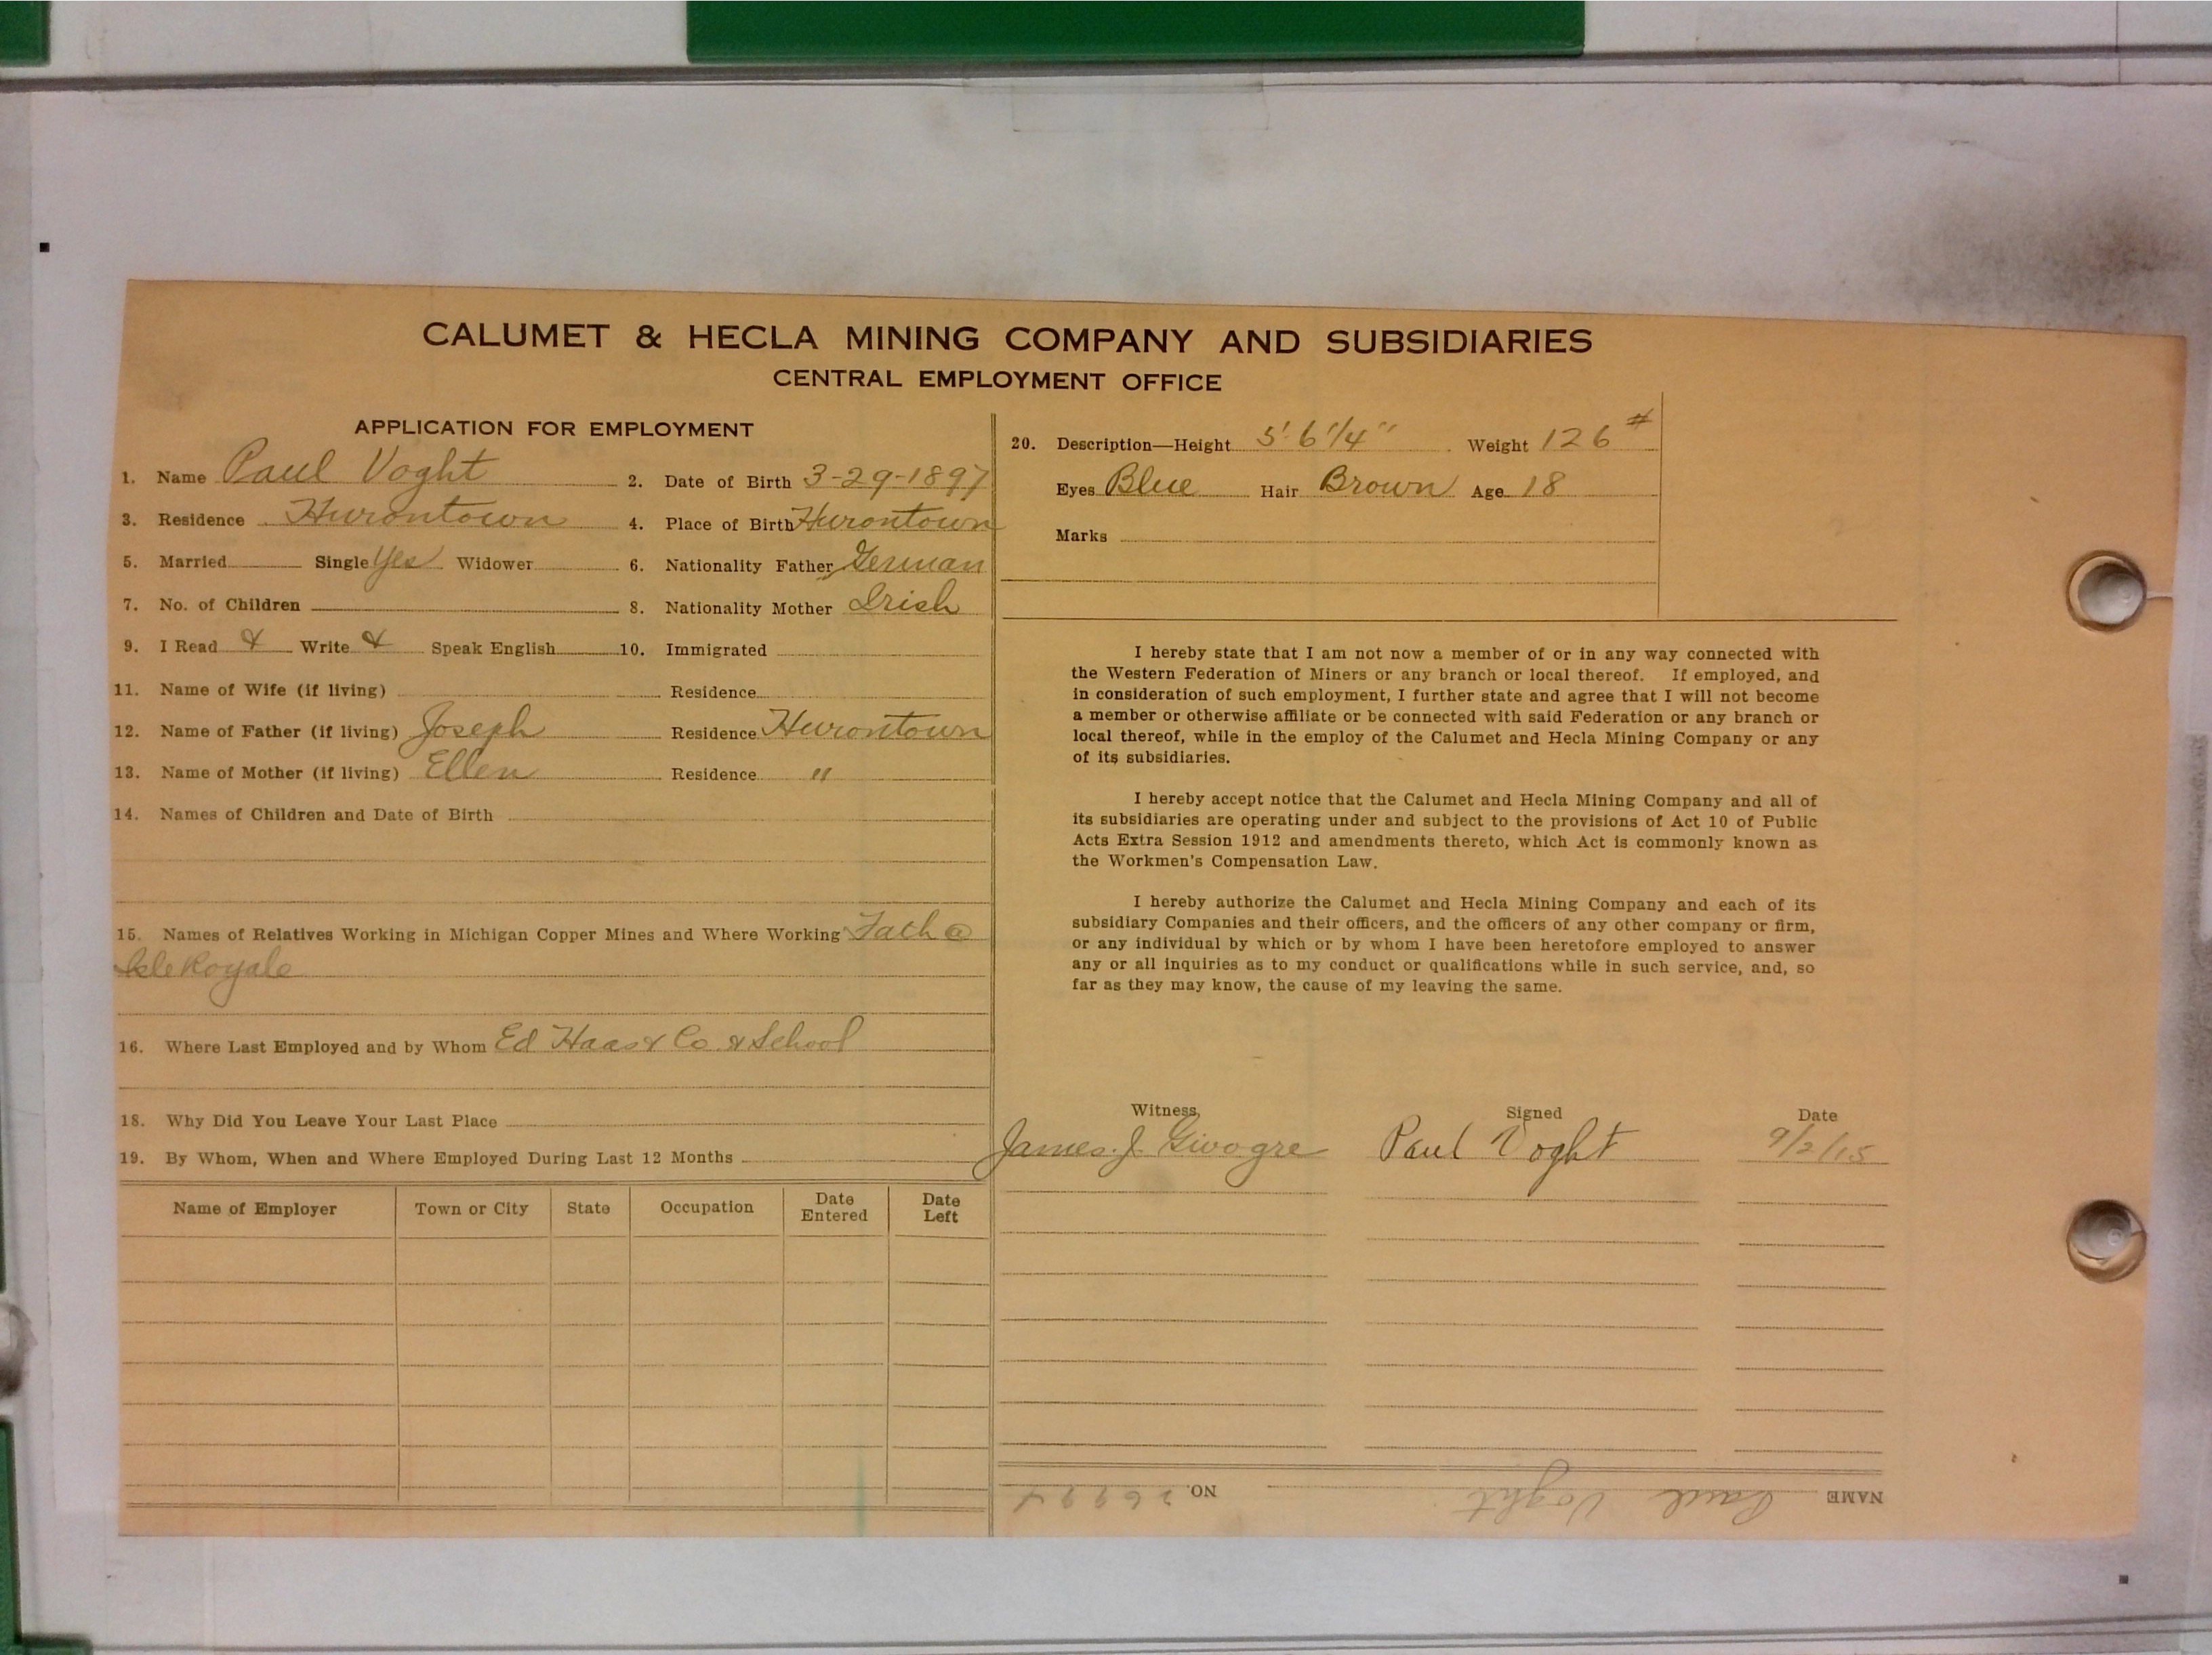 CALUMET & HECLA MINING COMPANY AND SUBSIDIARIES
CENTRAL EMPLOYMENT OFFICE
APPLICATION FOR EMPLOYMENT
1. Name Paul Voght 2. Date of Birth 3-29-1897
3. Residence Hurontown 4. Place of Birth Hurontown
5. Married Single Yes Widower 6. Nationality Father German
7. No. of Children 8. Nationality Mother Irish
9. I Read & Write & Speak English 10. Immigrated
11. Name of Wife (if living) Residence
12. Name of Father (if living) Joseph Residence Hurontown
13. Name of Mother (if living) Ellen Residence "
14. Names of Children and Date of Birth
15. Names of Relatives Working in Michigan Copper Mines and Where Working Fath @
Isle Royale
16. Where Last Employed and by Whom Ed Haas & Co. & School
18. Why Did You Leave Your Last Place
19. By Whom, When and Where Employed During Last 12 Months
Name of Employer Town or City State Occupation Date Entered Date Left
20. Description—Height 5' 6 1/4" Weight 126 #
Eyes Blue Hair Brown Age 18
Marks
I hereby state that I am not now a member of or in any way connected with
the Western Federation of Miners or any branch or local thereof. If employed, and
in consideration of such employment, I further state and agree that I will not become
a member or otherwise affiliate or be connected with said Federation or any branch or
local thereof, while in the employ of the Calumet and Hecla Mining Company or any
of its subsidiaries.
I hereby accept notice that the Calumet and Hecla Mining Company and all of
its subsidiaries are operating under and subject to the provisions of Act 10 of Public
Acts Extra Session 1912 and amendments thereto, which Act is commonly known as
the Workmen's Compensation Law.
I hereby authorize the Calumet and Hecla Mining Company and each of its
subsidiary Companies and their officers, and the officers of any other company or firm,
or any individual by which or by whom I have been heretofore employed to answer
any or all inquiries as to my conduct or qualifications while in such service, and, so
far as they may know, the cause of my leaving the same.
Witness Signed Date
James J. Givogre Paul Voght 9/2/15
NAME Paul Voght NO.